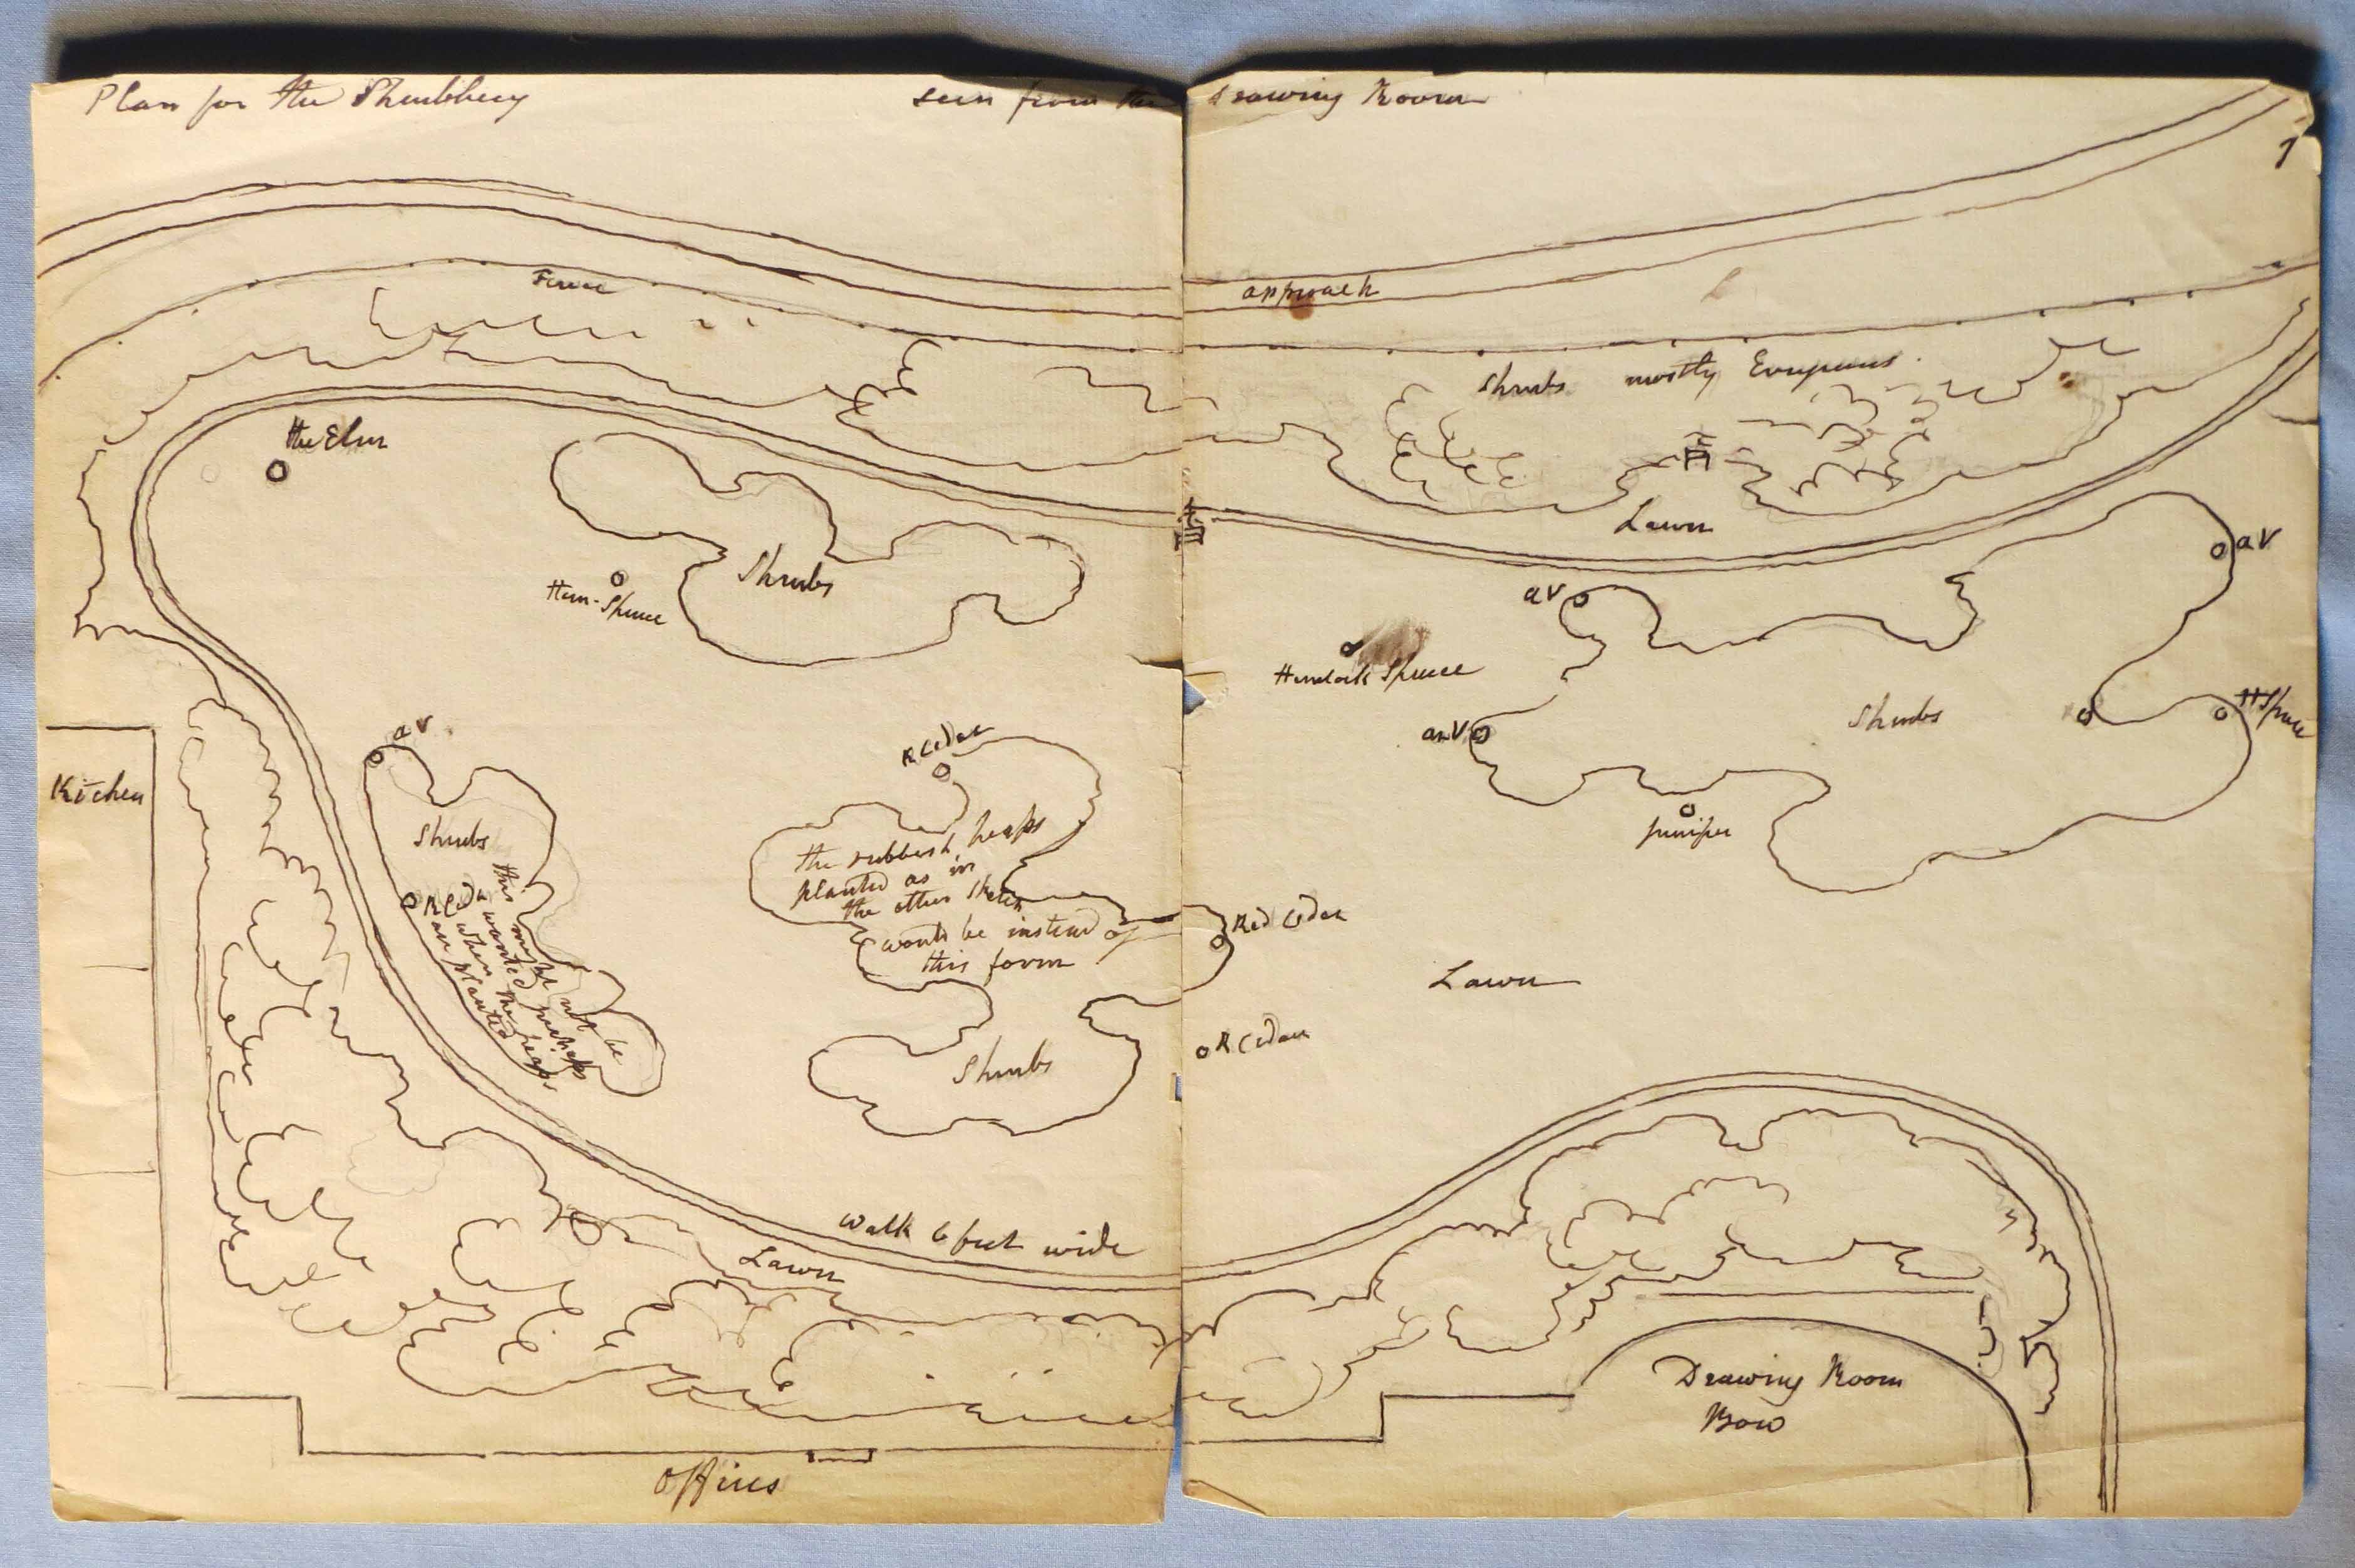 Plan for the Shrubbery seen from the Drawing Room
1
Fence
approach
Shrubs mostly Evergreens.
the Elm
Lawn
av
av
Hem-Spruce
Shrubs
Hemlock Spruce
av
R Cedar
arV
Shrubs
H Spruce
Kitchen
Shrubs
juniper
the rubbish heaps
planted as in
the other sketch
would be instead of
this form
R Cedar
this might not be
wanted perhaps
when the heaps
are planted
Red Cedar
Lawn
R Cedar
Shrubs
Walk 6 feet wide
Lawn
Drawing Room
Bow
Offices